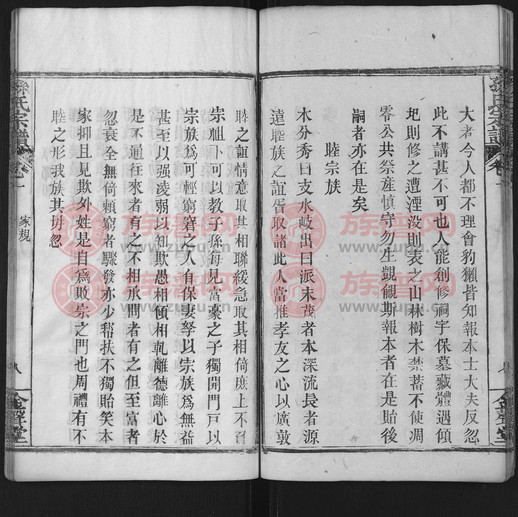 大者今人都不理會豺獺皆知報本士大夫反忽
此不講甚不可也人能創修祠宇保墓藏體遇傾
圮則修之遭湮沒則表之山林樹木禁蓄不使凋
零公共祭產慎守勿生覬覦斯報本者在是貽後
嗣者亦在是矣
睦宗族
水分秀曰支水岐出曰派末茂者本深流長者源
遠睦族之誼胥取諸此人當推孝友之心以廣敦
睦之誼情意取其相聯緩急取其相倚庶上不
宗祖下可以教子孫每見富豪之子獨開門戶以
宗族爲可輕窮窘之人自保妻孥以宗族爲無益
甚至以强凌弱以知欺愚相傾相軋離德離心於
是不通往來者有之不相承問者有之但至富者
忽衰全無倚賴窮者驟發亦少幫扶不獨貽笑本
家抑且見欺外姓是自爲敗宗之門也周禮有不
睦之形我族其毋忽
孫氏宗譜
卷一
家規
八
金聲堂
族譜网
www.zupu.cn